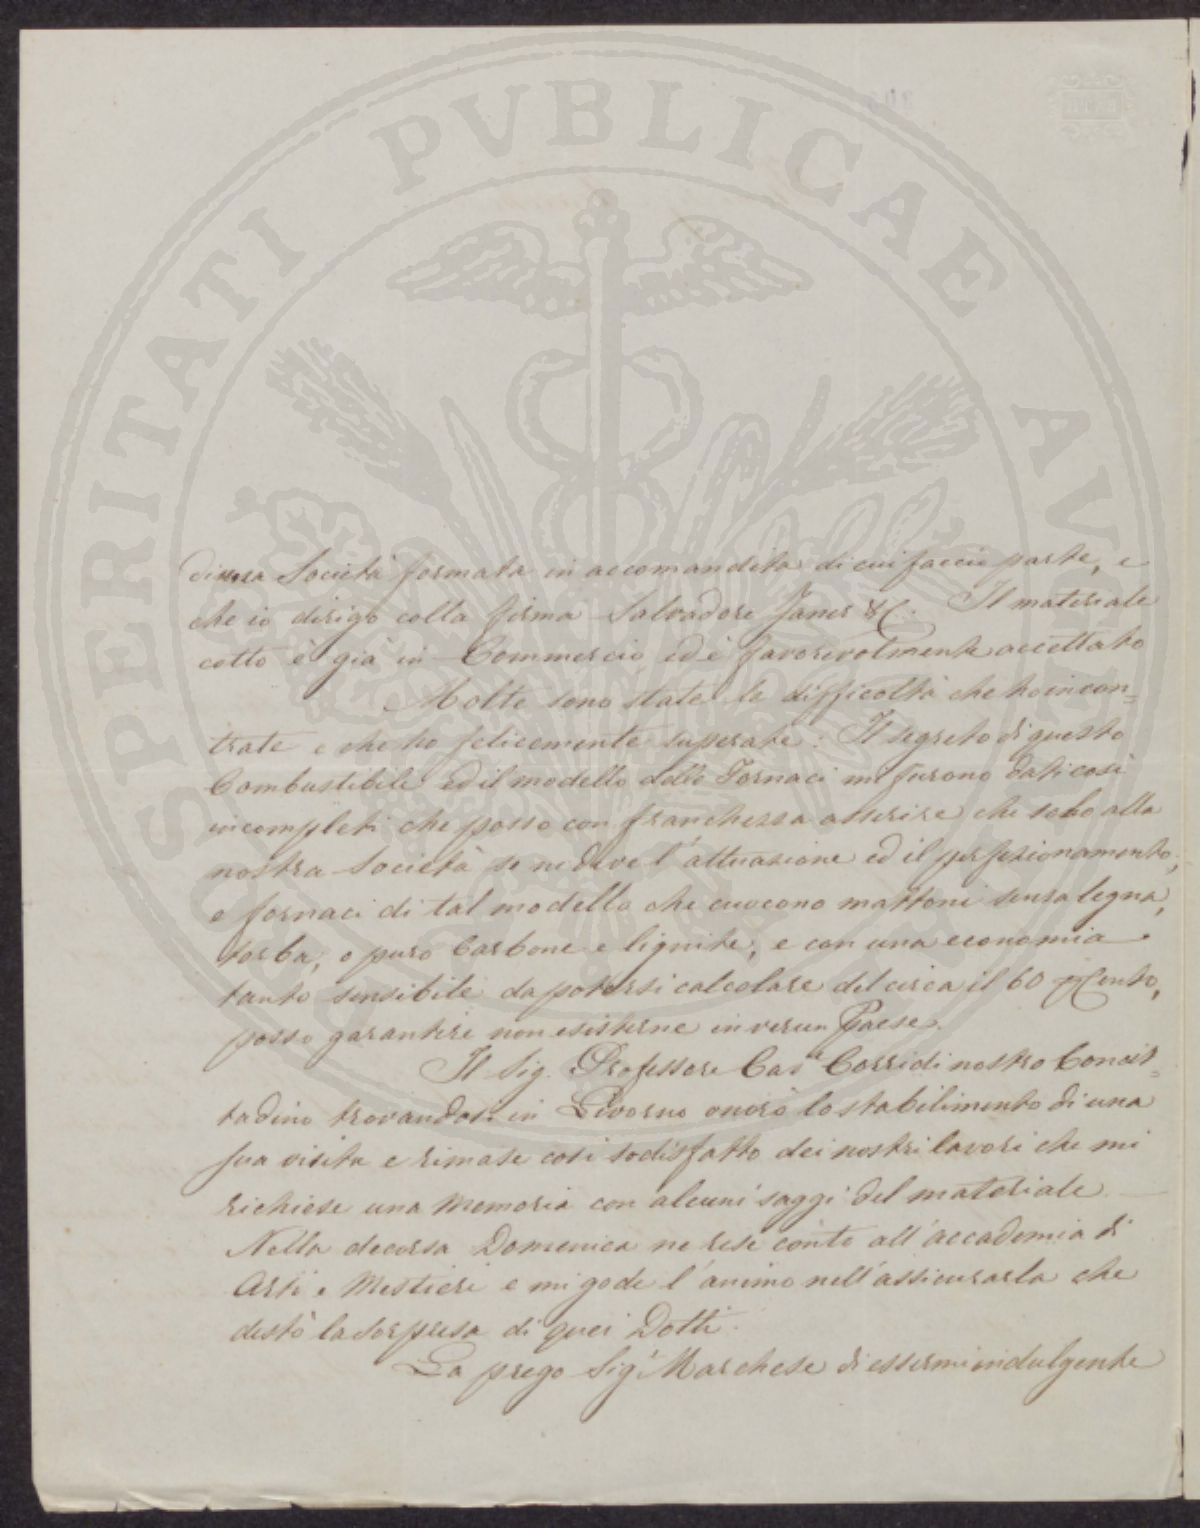 PROSPERITATI PVBLICAE AVGENDAE
diversa Società formata in accomandita di cui faccio parte, e
che io dirigo colla firma Salvadore Janer & C. Il materiale
cotto è già in Commercio ed è favorevolmente accettato
Molte sono state le difficoltà che ho incon=
trate e che ho felicemente superate: Il segreto di questo
Combustibile ed il modello delle Fornaci mi furono dati così
incompleti che posso con franchezza asserire che solo alla
nostra Società se ne deve l'attuazione ed il perfezionamento;
e fornaci di tal modello che cuocono mattoni senza legna,
torba, o puro Carbone e lignite, e con una economia
tanto sensibile da potersi calcolare del circa il 60 p Cento,
posso garantire non esisterne in verun Paese.
Il Sig. Professore Cav. Corridi nostro Concit=
tadino trovandosi in Livorno onorò lo stabilimento di una
sua visita e rimase così sodisfatto dei nostri lavori che mi
richiese una Memoria con alcuni saggi del materiale
Nella decorsa Domenica ne rese conto all'accademia di
Arti e Mestieri e mi gode l'animo nell'assicurarla che
destò la sorpresa di quei Dotti.
La prego Sig. Marchese di essermi indulgente